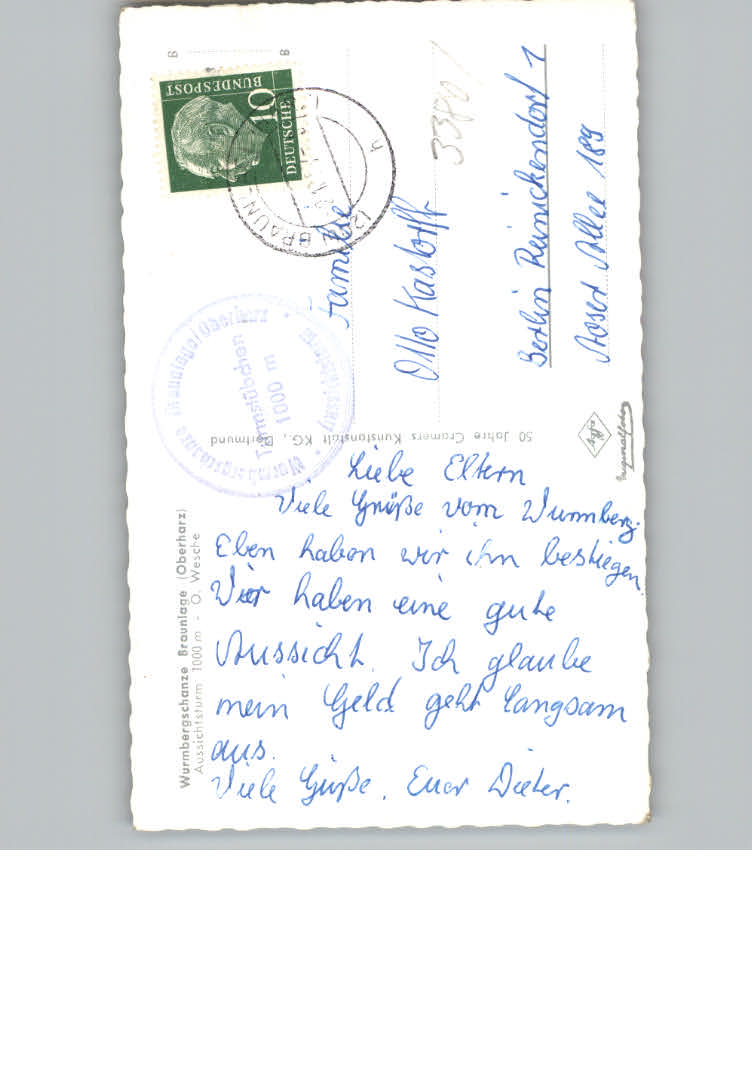 Wurmbergschanze Braunlage (Oberharz)
Aussichtsturm 1000 m - O. Wesche
Liebe Eltern
Viele Grüße vom Wurmberg.
Eben haben wir ihn bestiegen.
Wir haben eine gute
Aussicht. Ich glaube
mein Geld geht langsam
aus.
Viele Grüße. Euer Dieter.
50 Jahre Cramers Kunstanstalt KG., Dortmund
Familie
Otto Kastorff
Berlin Reinickendorf 1
Allee 189
DEUTSCHE
BUNDESPOST
10
BRAUNL
Wurmbergschanze Braunlage/Oberharz
Turmstübchen
1000 m
Agfa